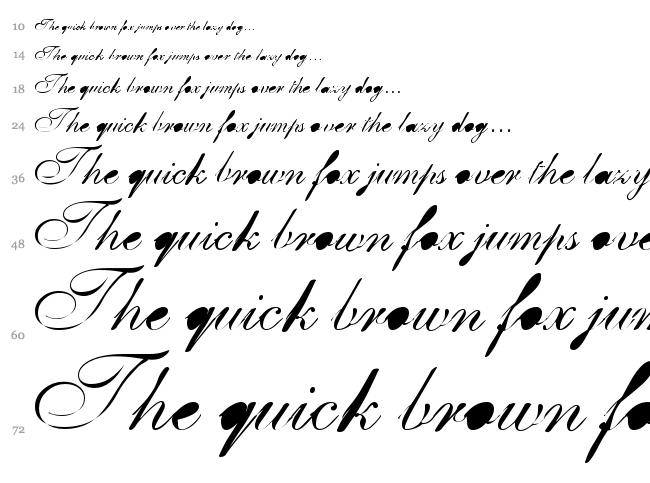 10 The quick brown fox jumps over the lazy dog...
14 The quick brown fox jumps over the lazy dog...
18 The quick brown fox jumps over the lazy dog...
24 The quick brown fox jumps over the lazy dog...
36 The quick brown fox jumps over the lazy
48 The quick brown fox jumps ove
60 The quick brown fox jum
72 The quick brown fo